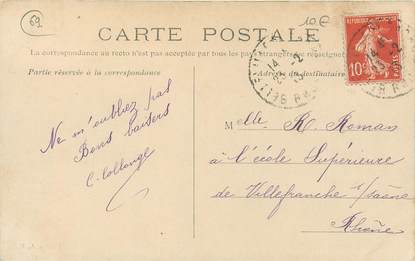 69
10€
CARTE POSTALE
La correspondance au recto n'est pas acceptée par tous les pays étrangers
Partie réservée à la correspondance
Adresse du destinataire
10c
Ne m'oubliez pas
Bons baisers
C. Collonge
Melle R. Roman
à l'école Supérieure
de Villefranche s/saône
Rhône